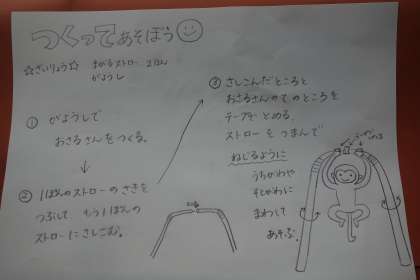 つくってあそぼう
☆ざいりょう☆ まがるストロー 2ほん
がようし
① がようしで
おさるさんをつくる。
↓
② 1ぽんのストローの さきを
つぶして もう1ぽんの
ストローにさしこむ。
③ さしこんだところと
おさるさんのてのところを
テープで とめる。
ストロー を つまんで
ねじるように
うちがわや
そとがわに
まわして
あそぶ。